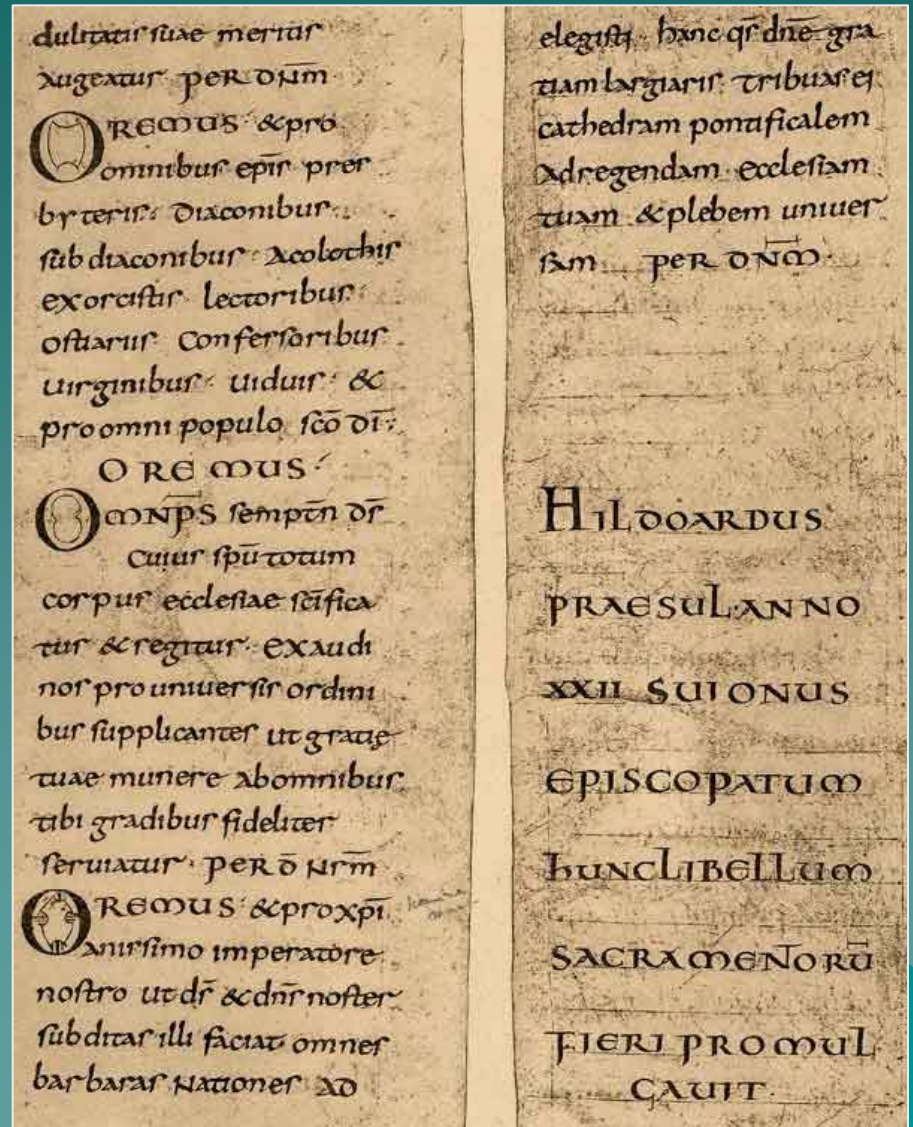 dulitatis suae meritis
Augeatur PER DNM
OREMUS & pro
omnibus epis pres
byteris Diaconibus
sub diaconibus Acolothis
exorcistis lectoribus
ostiariis Confessoribus
uirginibus uiduis &
pro omni populo sco di
OREMUS
OMNPS sempitn ds
cuius spu totum
corpus ecclesiae scifica
tur & regitur EXAudi
nos pro uniuersis ordini
bus supplicantes ut gratie
tuae munere Abomnibus
tibi gradibus fideliter
seruiatur PER D NrM
OREMUS & pro xpi
anissimo imperatore
nostro ut ds & dns noster
subditas illi faciat omnes
barbaras Nationes AD
elegisti hanc qs dne gra
tiam largiaris tribuas ei
cathedram pontificalem
Ad regendam ecclesiam
tuam & plebem uniuer
sam PER DNM
HILDOARDUS
PRAESUL ANNO
XXII SUI ONUS
EPISCOPATUM
hUNC LIBELLUM
SACRAMENORU
FIERI PROMUL
GAUIT